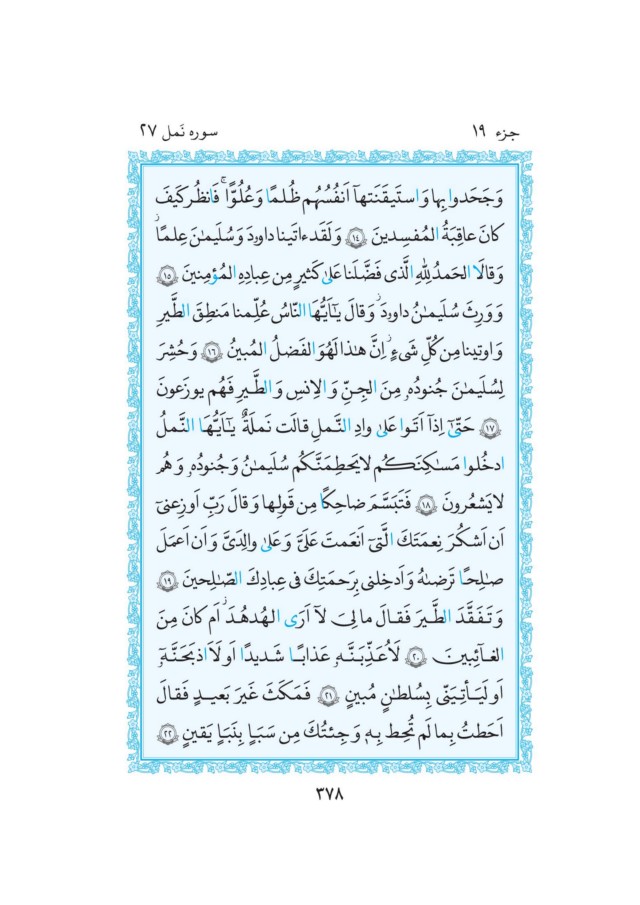 جزء ١٩
سوره نَمل ٢٧
وَجَحَدوا بِها وَاستَيقَنَتها اَنفُسُهُم ظُلمًا وَعُلُوًّا ۚ فَانظُر كَيفَ
كانَ عاقِبَةُ المُفسِدينَ ١٤ وَلَقَد ءاتَينا داودَ وَسُلَيمٰنَ عِلمًا ۖ
وَقالَا الحَمدُ لِلّٰهِ الَّذى فَضَّلَنا عَلىٰ كَثيرٍ مِن عِبادِهِ المُؤمِنينَ ١٥
وَوَرِثَ سُلَيمٰنُ داودَ ۖ وَقالَ يٰٓاَيُّهَا النّاسُ عُلِّمنا مَنطِقَ الطَّيرِ
وَاوتينا مِن كُلِّ شَىءٍ ۖ اِنَّ هٰذا لَهُوَ الفَضلُ المُبينُ ١٦ وَحُشِرَ
لِسُلَيمٰنَ جُنودُهو مِنَ الجِنِّ وَالاِنسِ وَالطَّيرِ فَهُم يوزَعونَ
١٧ حَتّىٰٓ اِذآ اَتَوا عَلىٰ وادِ النَّملِ قالَت نَملَةٌ يٰٓاَيُّهَا النَّملُ
ادخُلوا مَسٰكِنَكُم لا يَحطِمَنَّكُم سُلَيمٰنُ وَجُنودُهو وَهُم
لا يَشعُرونَ ١٨ فَتَبَسَّمَ ضاحِكًا مِن قَولِها وَقالَ رَبِّ اَوزِعنىٓ
اَن اَشكُرَ نِعمَتَكَ الَّتىٓ اَنعَمتَ عَلَىَّ وَعَلىٰ والِدَىَّ وَاَن اَعمَلَ
صٰلِحًا تَرضىٰهُ وَاَدخِلنى بِرَحمَتِكَ فى عِبادِكَ الصّٰلِحينَ ١٩
وَتَفَقَّدَ الطَّيرَ فَقالَ مالِىَ لآ اَرَى الهُدهُدَ ۖ اَم كانَ مِنَ
الغآئِبينَ ٢٠ لَاُعَذِّبَنَّهو عَذابًا شَديدًا اَو لَاَاذبَحَنَّهوٓ
اَو لَيَأتِيَنّى بِسُلطٰنٍ مُبينٍ ٢١ فَمَكَثَ غَيرَ بَعيدٍ فَقالَ
اَحَطتُ بِما لَم تُحِط بِهى وَجِئتُكَ مِن سَبَاٍ بِنَبَاٍ يَقينٍ ٢٢
٣٧٨